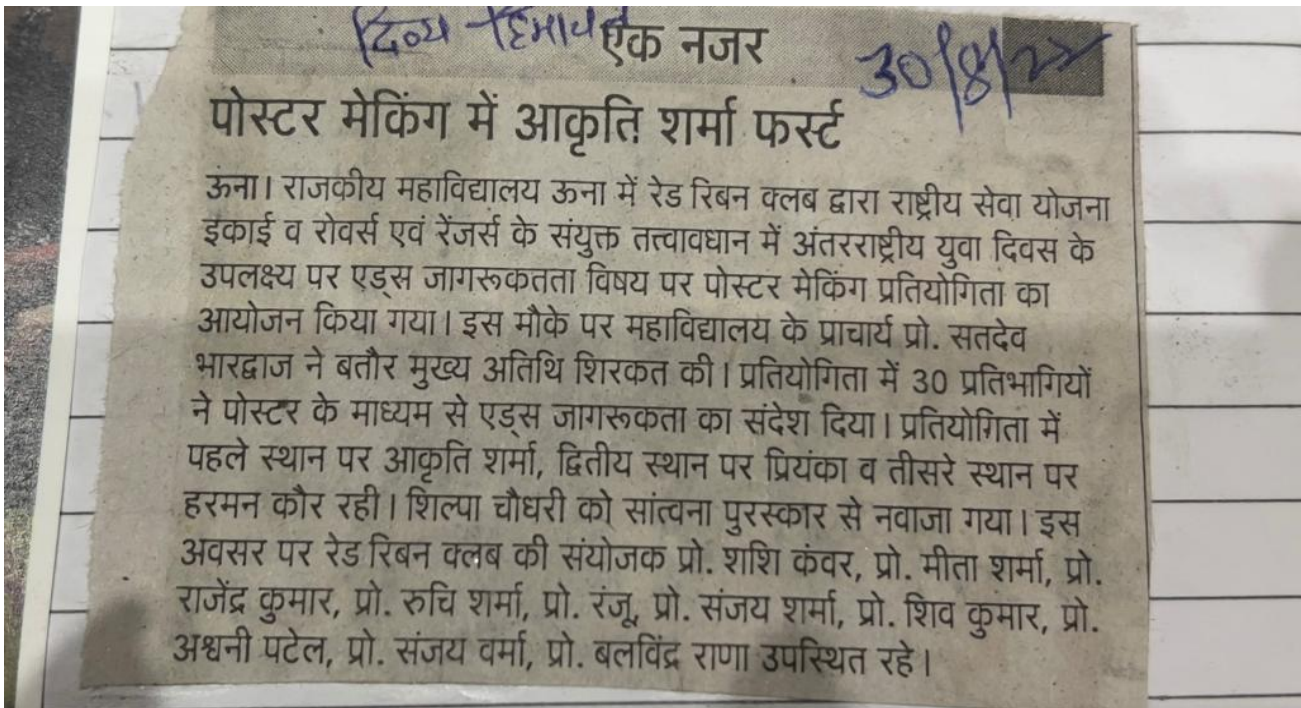 दिव्य हिमाचल
एक नजर
30/8/22
पोस्टर मेकिंग में आकृति शर्मा फर्स्ट
ऊना। राजकीय महाविद्यालय ऊना में रेड रिबन क्लब द्वारा राष्ट्रीय सेवा योजना
इकाई व रोवर्स एवं रेंजर्स के संयुक्त तत्त्वावधान में अंतरराष्ट्रीय युवा दिवस के
उपलक्ष्य पर एड्स जागरूकतता विषय पर पोस्टर मेकिंग प्रतियोगिता का
आयोजन किया गया। इस मौके पर महाविद्यालय के प्राचार्य प्रो. सतदेव
भारद्वाज ने बतौर मुख्य अतिथि शिरकत की। प्रतियोगिता में 30 प्रतिभागियों
ने पोस्टर के माध्यम से एड्स जागरूकता का संदेश दिया। प्रतियोगिता में
पहले स्थान पर आकृति शर्मा, द्वितीय स्थान पर प्रियंका व तीसरे स्थान पर
हरमन कौर रही। शिल्पा चौधरी को सांत्वना पुरस्कार से नवाजा गया। इस
अवसर पर रेड रिबन क्लब की संयोजक प्रो. शशि कंवर, प्रो. मीता शर्मा, प्रो.
राजेंद्र कुमार, प्रो. रुचि शर्मा, प्रो. रंजू, प्रो. संजय शर्मा, प्रो. शिव कुमार, प्रो.
अश्वनी पटेल, प्रो. संजय वर्मा, प्रो. बलविंद्र राणा उपस्थित रहे।